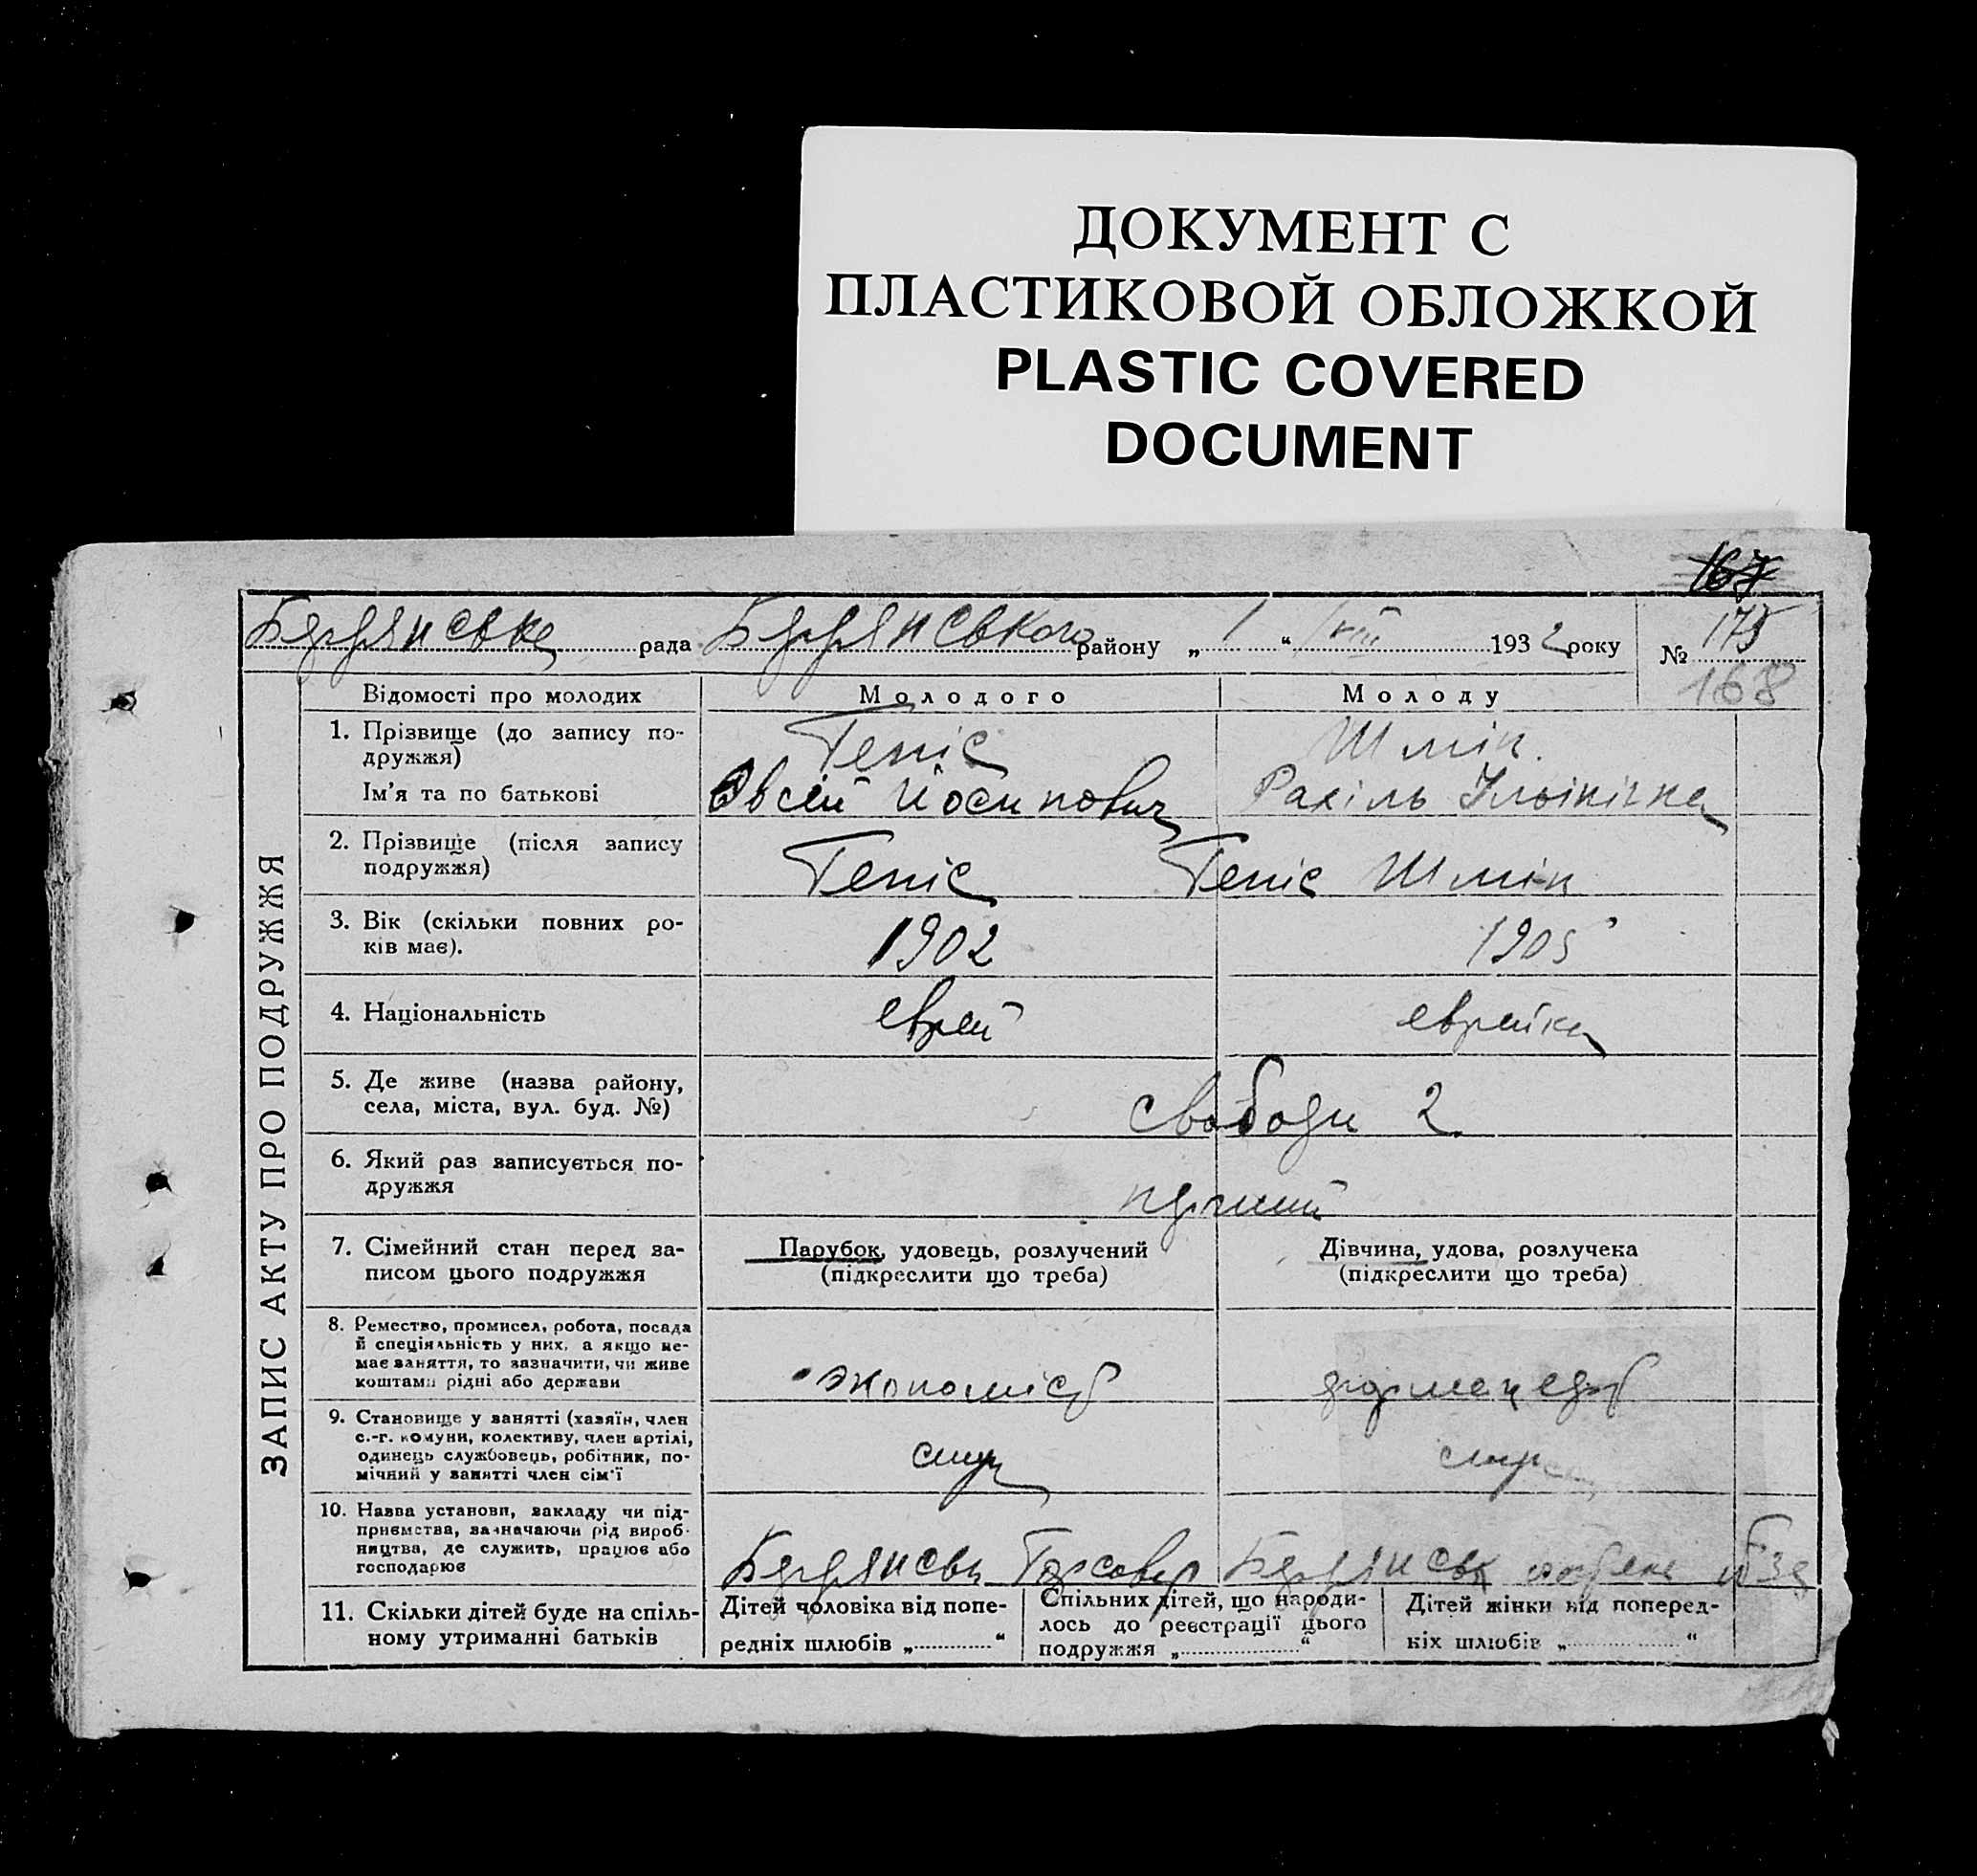 ДОКУМЕНТ С
ПЛАСТИКОВОЙ ОБЛОЖКОЙ
PLASTIC COVERED
DOCUMENT
167
Бердянська рада Бердянського району „ 1 “ VIII 1932 року № 175
168
ЗАПИС АКТУ ПРО ПОДРУЖЖЯ
Відомості про молодих Молодого Молоду
1. Прізвище (до запису по-
дружжя)
Геніс Шмін.
Ім'я та по батькові Овсій Йосипович Рахіль Ільінічна
2. Прізвище (після запису
подружжя)
Геніс Геніс Шмін
3. Вік (скільки повних ро-
ків має).
1902 1905
4. Національність еврей еврейка
5. Де живе (назва району,
села, міста, вул. буд. №)
Свободи 2
6. Який раз записується по-
дружжя
перший
7. Сімейний стан перед за-
писом цього подружжя
Парубок, удовець, розлучений
(підкреслити що треба)
Дівчина, удова, розлучека
(підкреслити що треба)
8. Ремество, промисел, робота, посада
й спеціяльність у них, а якщо не-
має заняття, то зазначити, чи живе
коштами рідні або держави
экономіст
9. Становище у занятті (хазяїн, член
с.-г. комуни, колективу, член артілі,
одинець службовець, робітник, по-
мічний у занятті член сім'ї
служ
10. Назва установи, закладу чи під-
приємства, зазначаючи рід вироб-
ництва, де служить, працює або
господарює
Бердянськ Бердянськ
11. Скільки дітей буде на спіль-
ному утриманні батьків
Дітей чоловіка від попе-
редніх шлюбів „ “
Спільних дітей, що народи-
лось до реєстрації цього
подружжя „ “
Дітей жінки від поперед-
кіх шлюбів „ “